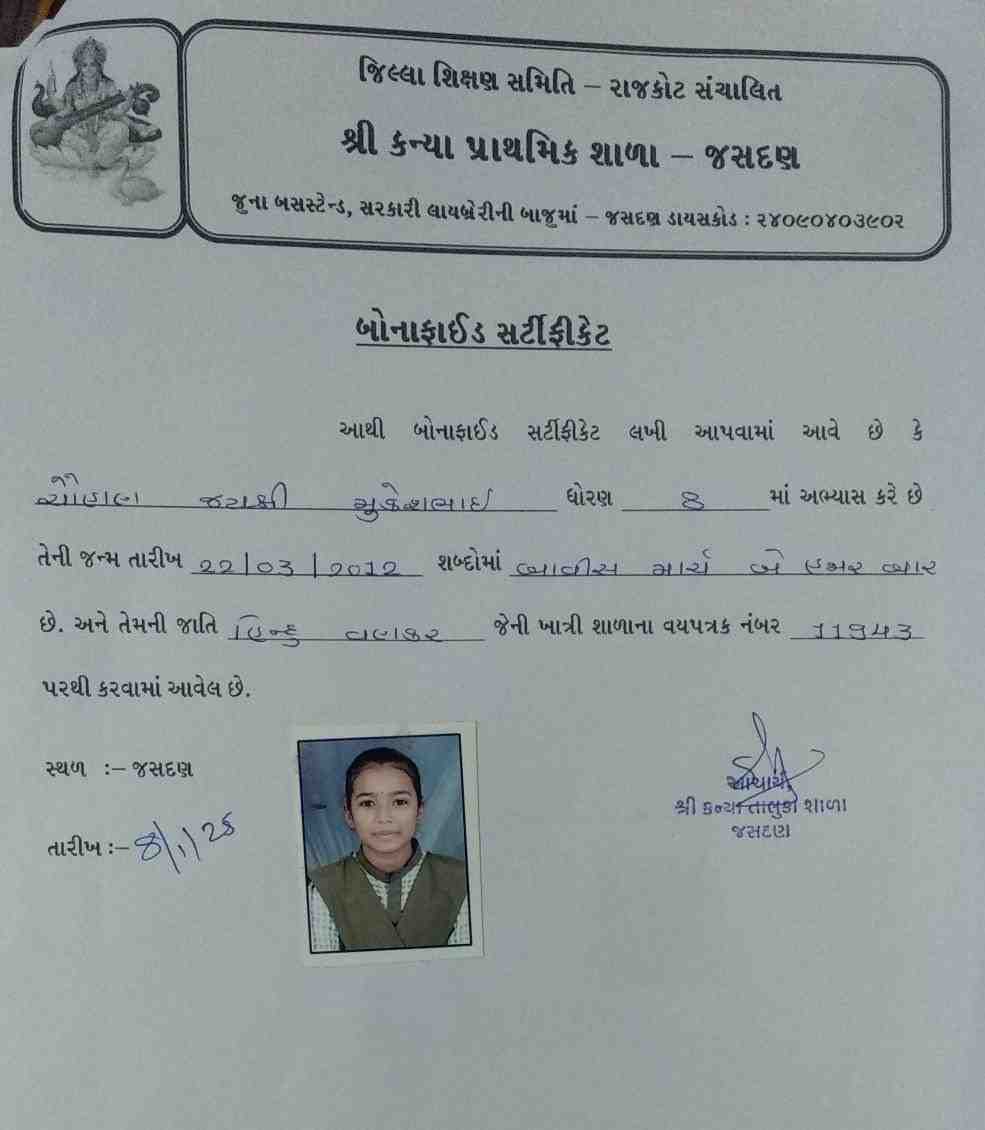 જિલ્લા શિક્ષણ સમિતિ – રાજકોટ સંચાલિત
શ્રી કન્યા પ્રાથમિક શાળા – જસદણ
જુના બસસ્ટેન્ડ, સરકારી લાયબ્રેરીની બાજુમાં – જસદણ ડાયસકોડ : ૨૪૦૯૦૪૦૩૯૦૨
બોનાફાઈડ સર્ટીફીકેટ
આથી બોનાફાઈડ સર્ટીફીકેટ લખી આપવામાં આવે છે કે
ચૌહાણ જયશ્રી મુકેશભાઈ ધોરણ 8 માં અભ્યાસ કરે છે
તેની જન્મ તારીખ 22/03/2012 શબ્દોમાં બાવીસ માર્ચ બે હજાર બાર
છે. અને તેમની જાતિ હિન્દુ વણકર જેની ખાત્રી શાળાના વયપત્રક નંબર 11943
પરથી કરવામાં આવેલ છે.
સ્થળ :– જસદણ
આચાર્ય,
શ્રી કન્યા તાલુકા શાળા
જસદણ
તારીખ :– 8/1/25